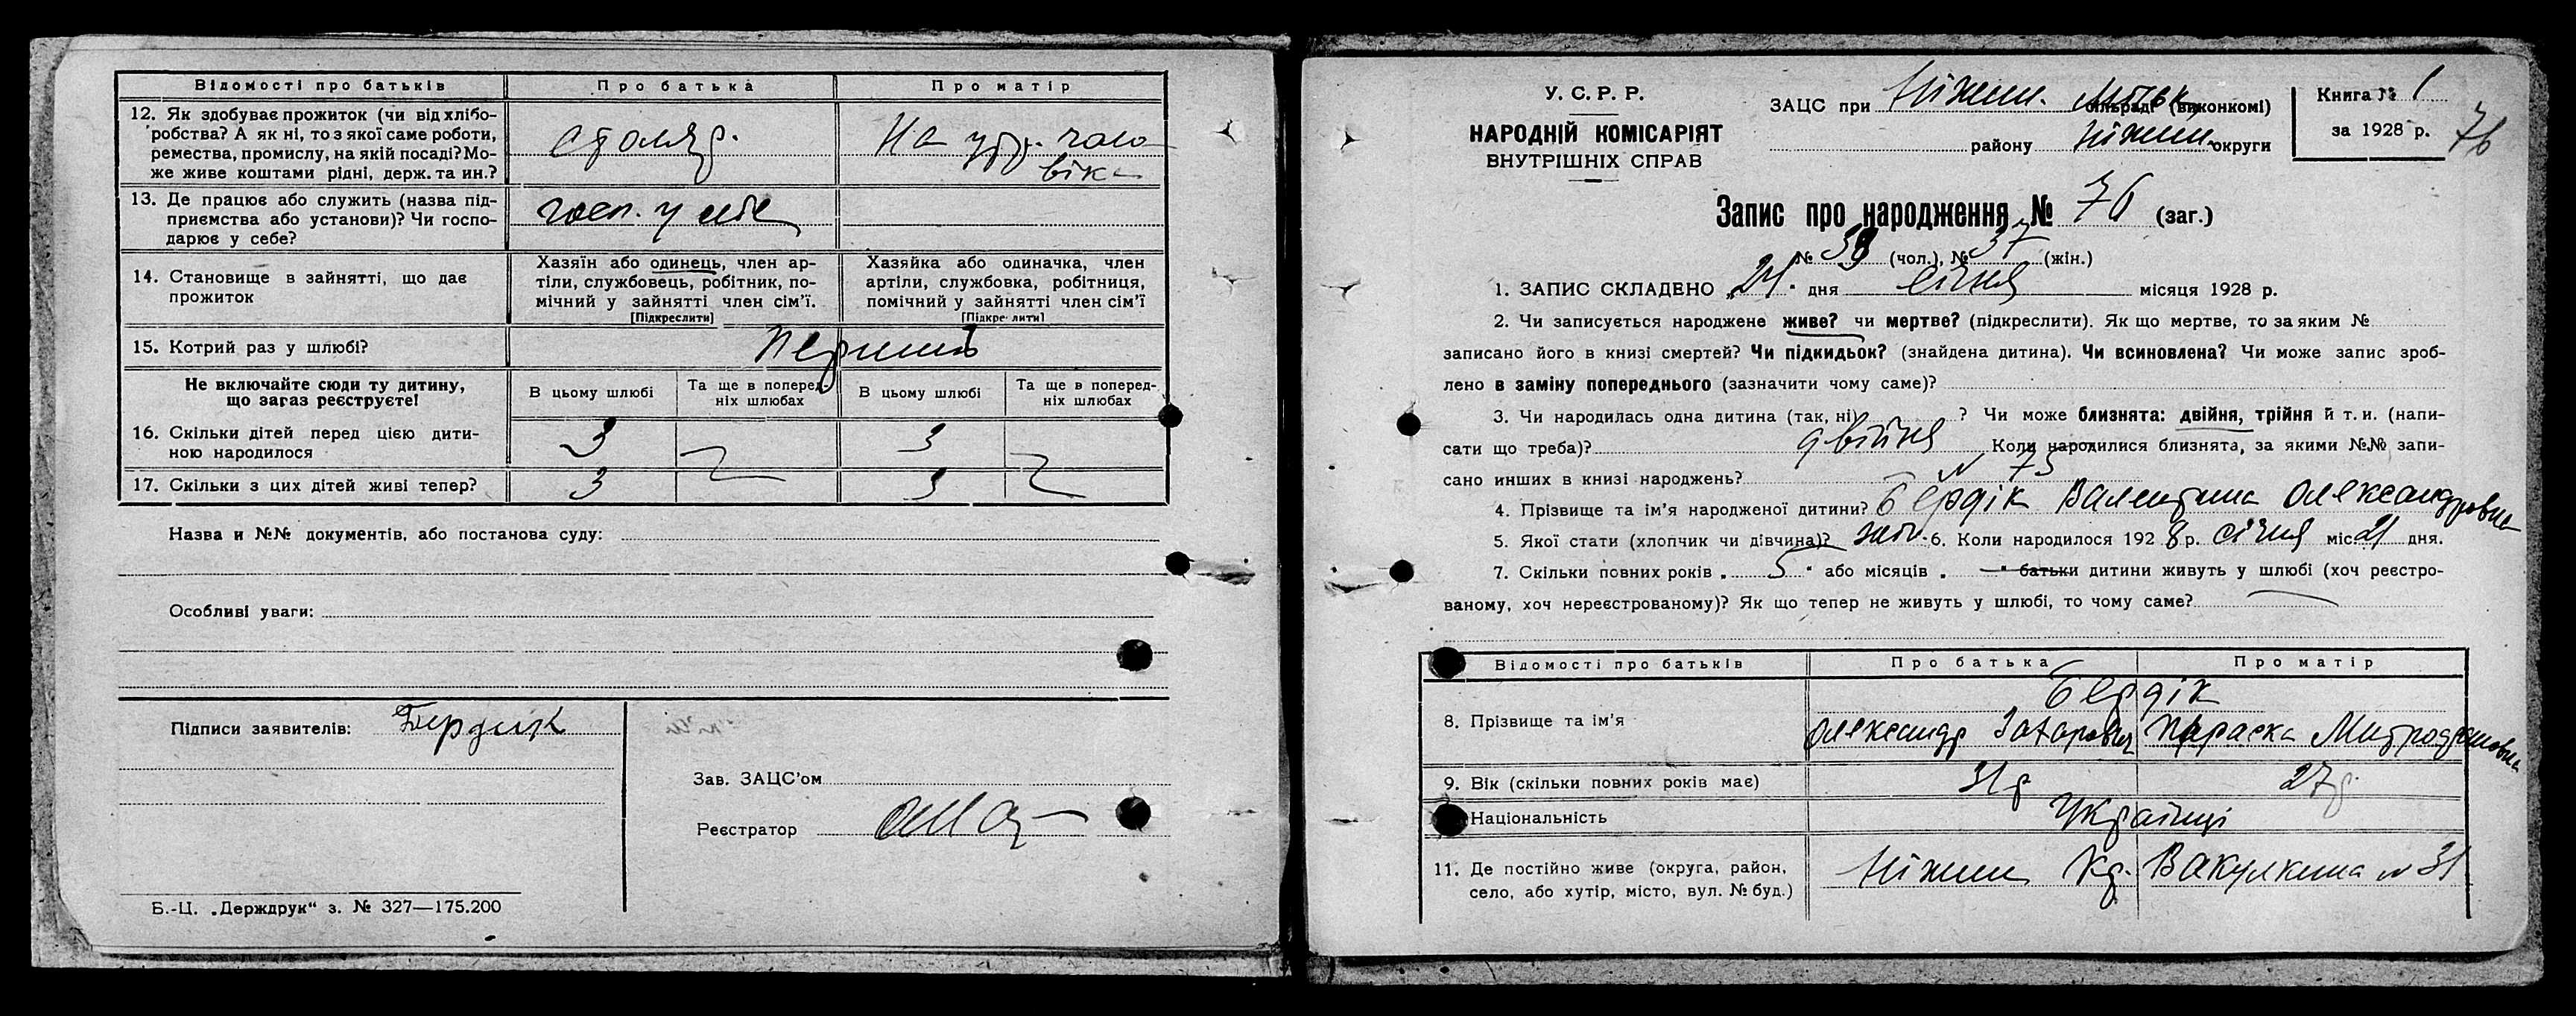 Відомості про батьків Про батька Про матір
12. Як здобуває прожиток (чи від хлібо-
робства? А як ні, то з якої саме роботи,
ремества, промислу, на якій посаді? Мо-
же живе коштами рідні, держ. та ин.?
столяр.
На утр. чоло
віка
13. Де працює або служить (назва під-
приємства або установи)? Чи госпо-
дарює у себе?
госп. у себе
14. Становище в зайнятті, що дає
прожиток
Хазяїн або одинець, член ар-
тілі, службовець, робітник, по-
мічний у зайнятті член сім'ї.
[Підкреслити]
Хазяйка або одиначка, член
артіли, службовка, робітниця,
помічний у зайнятті член сім'ї
[Підкреслити]
15. Котрий раз у шлюбі? перший
Не включайте сюди ту дитину,
що загаз реєструєте!
В цьому шлюбі
Та ще в поперед-
ніх шлюбах
В цьому шлюбі
Та ще в поперед-
ніх шлюбах
16. Скільки дітей перед цією дити-
ною народилося
3 3
17. Скільки з цих дітей живі тепер? 3 3
Назва и №№ документів, або постанова суду:
Особливі уваги:
Підписи заявителів: Бердик
Зав. ЗАЦС'ом
Реєстратор
Б.-Ц. „Держдрук“ з. № 327—175.200
У. С. Р. Р.
НАРОДНІЙ КОМІСАРІЯТ
ВНУТРІШНІХ СПРАВ
ЗАЦС при Ніжин. сільраді (виконкомі)
району Ніжин. округи
Книга № 1
за 1928 р.
76
Запис про народження № 76 (заг.)
№ 39 (чол.), № 37 (жін.)
1. ЗАПИС СКЛАДЕНО „24“ дня січня місяця 1928 р.
2. Чи записується народжене живе? чи мертве? (підкреслити). Як що мертве, то за яким №
записано його в книзі смертей? Чи підкидьок? (знайдена дитина). Чи всиновлена? Чи може запис зроб-
лено в заміну попереднього (зазначити чому саме)?
3. Чи народилась одна дитина (так, ні) ? Чи може близнята: двійня, трійня й т. и. (напи-
сати що треба)? двійня Коли народилися близнята, за якими №№ запи-
сано инших в книзі народжень? № 75
4. Прізвище та ім'я народженої дитини? Бердік Валентина Олександровна
5. Якої стати (хлопчик чи дівчина)? жін. 6. Коли народилося 1928 р. січня міс 21 дня.
7. Скільки повних років „ 5 “ або місяців „ — “ батьки дитини живуть у шлюбі (хоч реєстро-
ваному, хоч нереєстрованому)? Як що тепер не живуть у шлюбі, то чому саме?
Відомості про батьків Про батька Про матір
Бердік
8. Прізвище та ім'я
Олександр Захарович Параска Митрофановна
9. Вік (скільки повних років має) 31 р 27 р.
Національність Українці
11. Де постійно живе (округа, район,
село, або хутір, місто, вул. № буд.)
Ніжин Кр. Вакулкина № 31